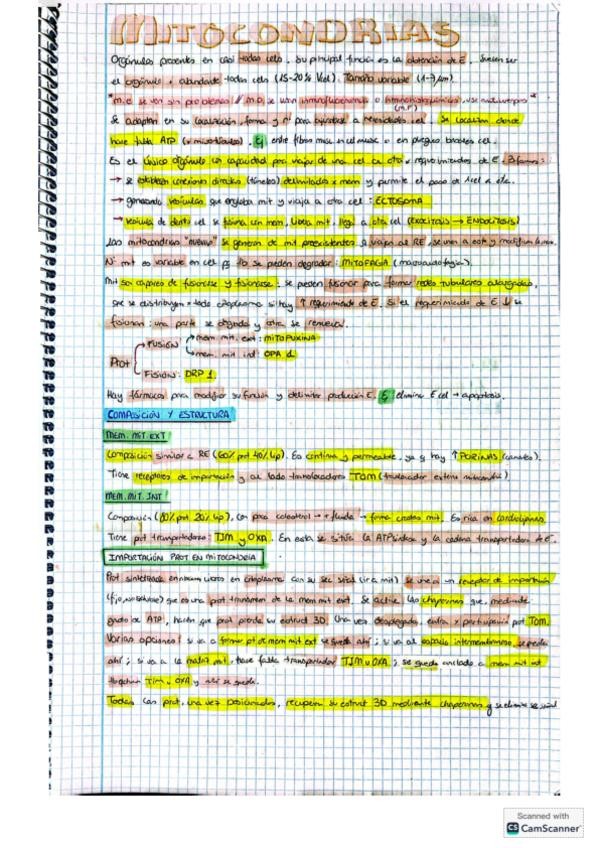 MITOCONDRIAS
Orgánulos presentes en casi todas cels. Su principal función es la obtención de E. Suelen ser
el orgánulo + abundante todas cels (15-20% Vcel). Tamaño variable (1-7 µm).
* M.E se ven sin problemas // M.O. se usan inmunofluorescencia o inmunohistoquímica, use anticuerpos *
Se adaptan en su localización, forma y nº para ajustarse a necesidades cel. Se localizan donde
hace falta ATP (x microtúbulos). Ej entre fibras musc en cel musc o en pliegues basales cel.
Es el único orgánulo con capacidad para viajar de una cel a otra x requerimientos de E. 3 formas:
→ se establecen conexiones directas (túneles) delimitados x mem y permite el paso de 1 cel a otra.
→ generando vesículas que engloba mit y viaja a otra cel: ECTOSOMA
→ vesícula de dentro cel se fusiona con mem, libera mit, llega a otra cel (EXOCITOSIS → ENDOCITOSIS)
Las mitocondrias "nuevas" se generan de mit preexistentes y viajan al RE, se unen a este y modifican
Nº mit es variable en cel pq tb se pueden degradar: MITOFAGIA (macroautofagia).
Mit son capaces de fusionarse y fisionarse: se pueden fusionar para formar redes tubulares alargadas,
que se distribuyen x todo citoplasma si hay ↑ requerimiento de E. Si el requerimiento de E ↓ se
fisionan: una parte se degrada y otra se renueva.
Prot
FUSIÓN
mem. mit. ext: MITOFUXINA
mem. mit. int: OPA 1
FISIÓN: DRP 1
Hay fármacos para modificar su función y delimitar producción E. Ej elimina E cel → apoptosis.
COMPOSICIÓN Y ESTRUCTURA
MEM. MIT. EXT
Composición similar a RE (60% prot 40% lip). Es continua y permeable, ya q hay ↑ PORINAS (canales).
Tiene receptores de importación y al lado translocadores TOM (translocador externa mitocondrial)
MEM. MIT. INT
Composición (80% prot 20% lip), con poco colesterol → + fluida → forma crestas mit. Es rica en cardiolipinas.
Tiene prot transportadoras: TIM y OXA. En esta se sitúa la ATPsintasa y la cadena transportadora de e-.
IMPORTACIÓN PROT EN MITOCONDRIA
Prot sintetizada en ribosom libres en citoplasma con su sec señal (ir a mit) se une a un receptor de importación
(fijo, no se mueve) que es una prot transmem de la mem mit ext. Se activa las chaperonas que, mediante
gasto de ATP, hacen que prot pierda su estruct 3D. Una vez desplegada, entra x porinas y prot TOM.
Varias opciones: si va a formar pt de mem mit ext se queda ahí; si va al espacio intermembranoso, se queda
ahí; si va a la matriz mit, hace falta transportador TIM u OXA; se queda anclado a mem mit int
llegan TIM u OXA y ahí se queda.
Todas las prot, una vez posicionadas, recuperan su estruct 3D mediante chaperonas y se elimina se señal
Scanned with
CS CamScanner